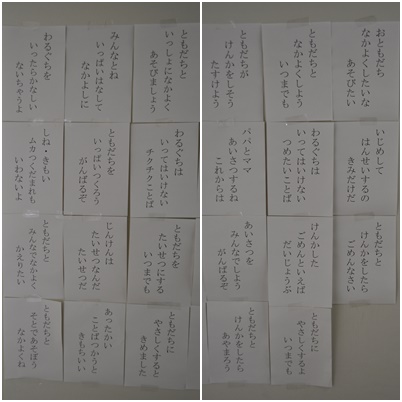 ともだちと
いっしょになかよく
あそびましょう
みんなとね
いっぱいはなして
なかよしに
わるぐちを
いったらかなしい
ないちゃうよ
わるぐちは
いってはいけない
チクチクことば
ともだちを
いっぱいつくろう
がんばるぞ
しね・きもい
ムカつくだまれも
いわないよ
ともだちを
たいせつにする
いつまでも
じんけんは
たいせつなんだ
たいせつだ
ともだちと
みんなでなかよく
かえりたい
ともだちに
やさしくすると
きめました
あったかい
ことばつかうと
きもちいい
ともだちと
そとであそぼう
なかよくね
おともだち
なかよくしたいな
あそびたい
ともだちと
なかよくしよう
いつまでも
ともだちが
けんかをしそう
たすけよう
いじめして
はんせいするの
きみだけだ
わるぐちは
いってはいけない
つめたいことば
パパとママ
あいさつするね
これからは
ともだちと
けんかをしたら
ごめんなさい
けんかした
ごめんといえば
だいじょうぶ
あいさつを
みんなでしよう
がんばるぞ
ともだちに
やさしくするよ
いつまでも
ともだちと
けんかをしたら
あやまろう